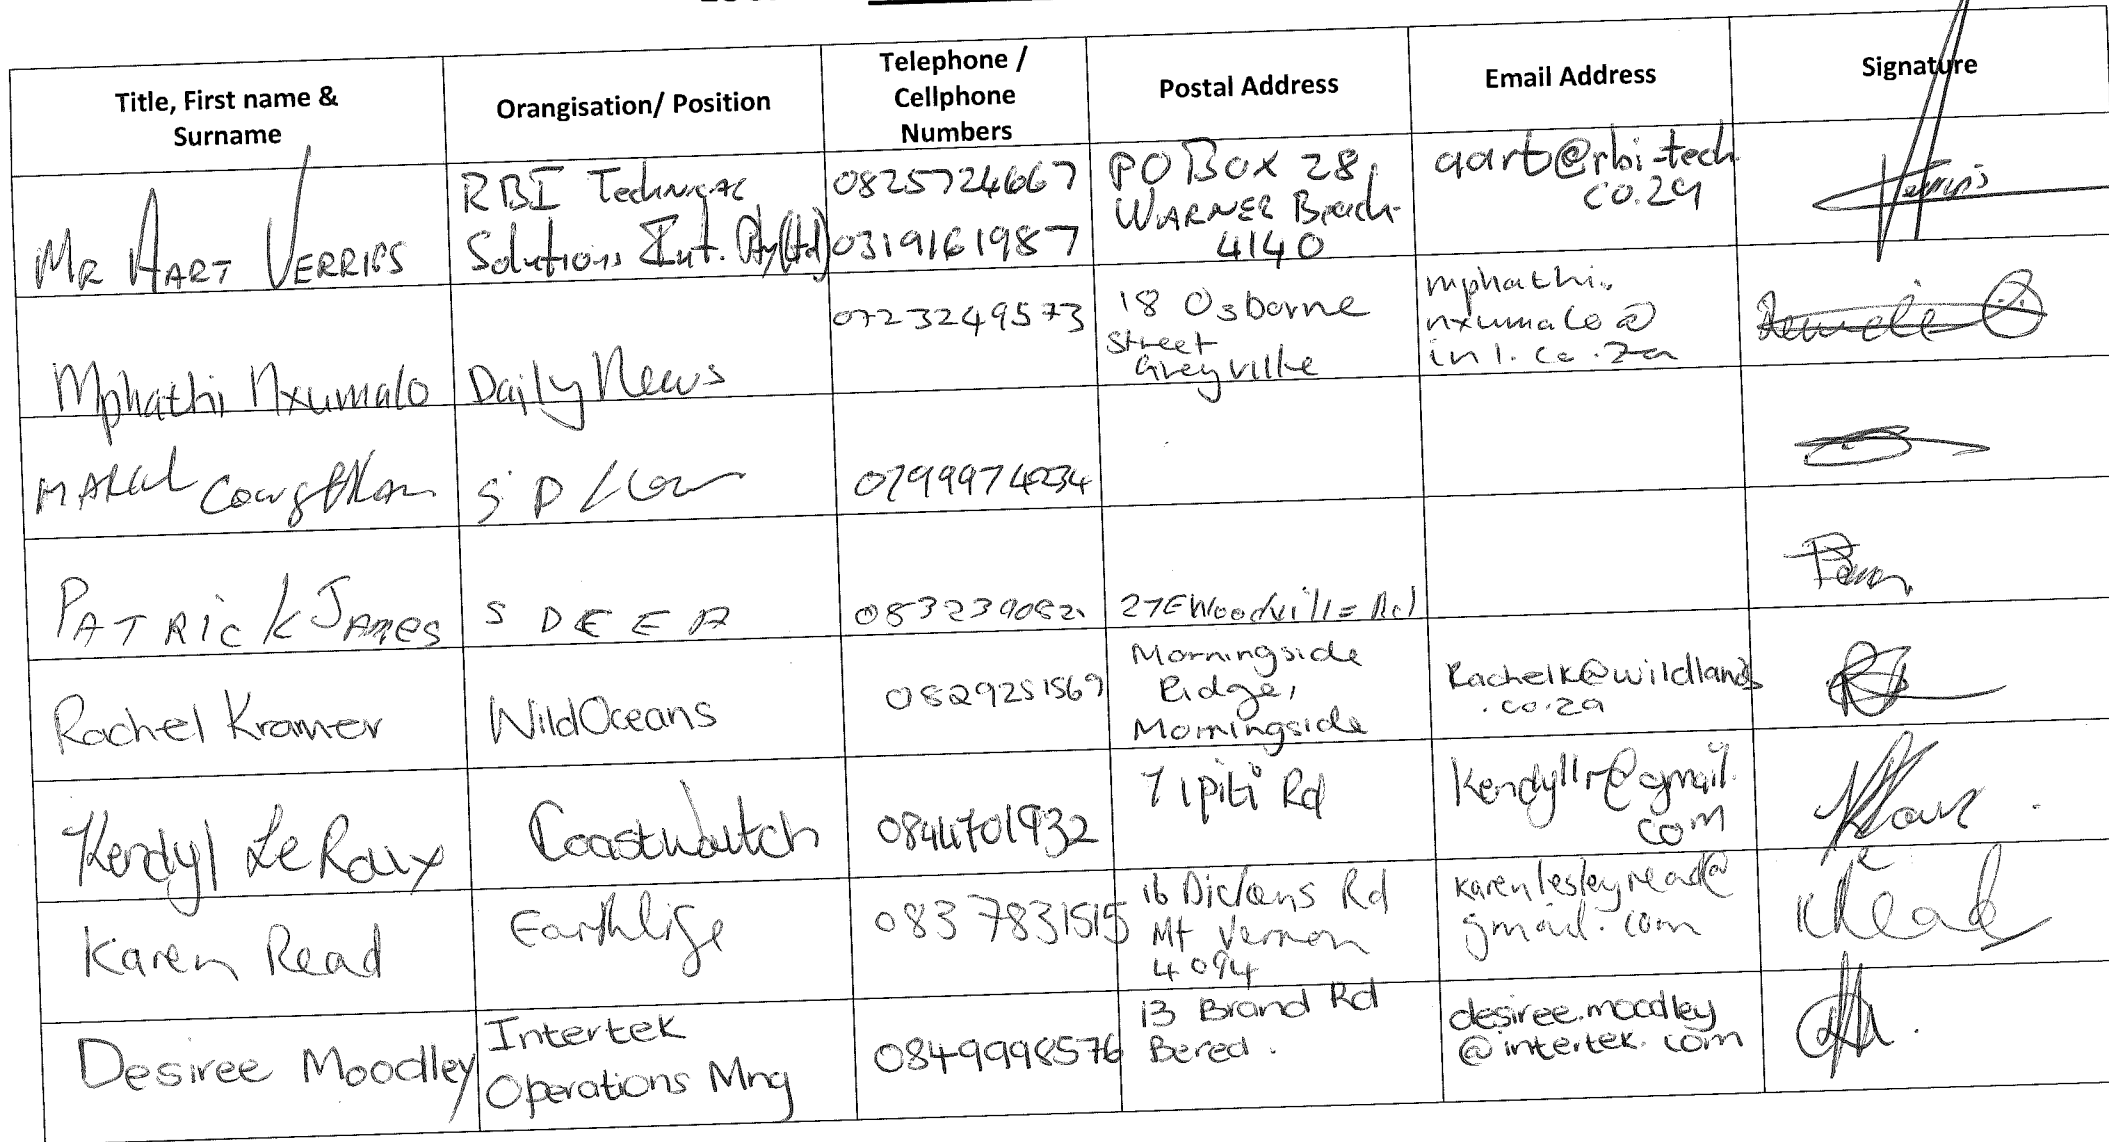 Title, First name &
Surname
Orangisation/ Position
Telephone /
Cellphone
Numbers
Postal Address
Email Address
Signature
MR AART VERRIPS
RBI Technical
Solutions Int. (Pty)(Ltd)
0825724667
0319161987
PO BOX 28,
WARNER Beach
4140
aart@rbi-tech
co.za
Mphathi Nxumalo
Daily News
0723249573
18 Osborne
Street
Greyville
mphathi.
nxumalo@
inl.co.za
S D
PATRICK JAMES
S D C E A
27E Woodville Rd
Rachel Kramer
WildOceans
0829251569
Morningside
Ridge,
Morningside
Rachelk@wildlands
.co.za
Kendyl Le Roux
Coastwatch
0844701932
7 Ipiti Rd
Kendyllr@gmail.
com
Karen Read
Earthlife
083 7831515
16 Dickens Rd
Mt Vernon
4094
karenlesleyread@
gmail.com
KRead
Desiree Moodley
Intertek
Operations Mng
0849998576
13 Brand Rd
Berea.
desiree.moodley
@intertek.com